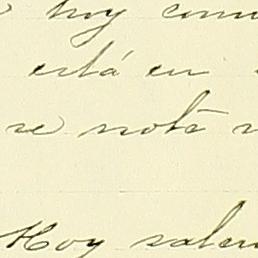 hoy com
está en
se nota
Hoy salen